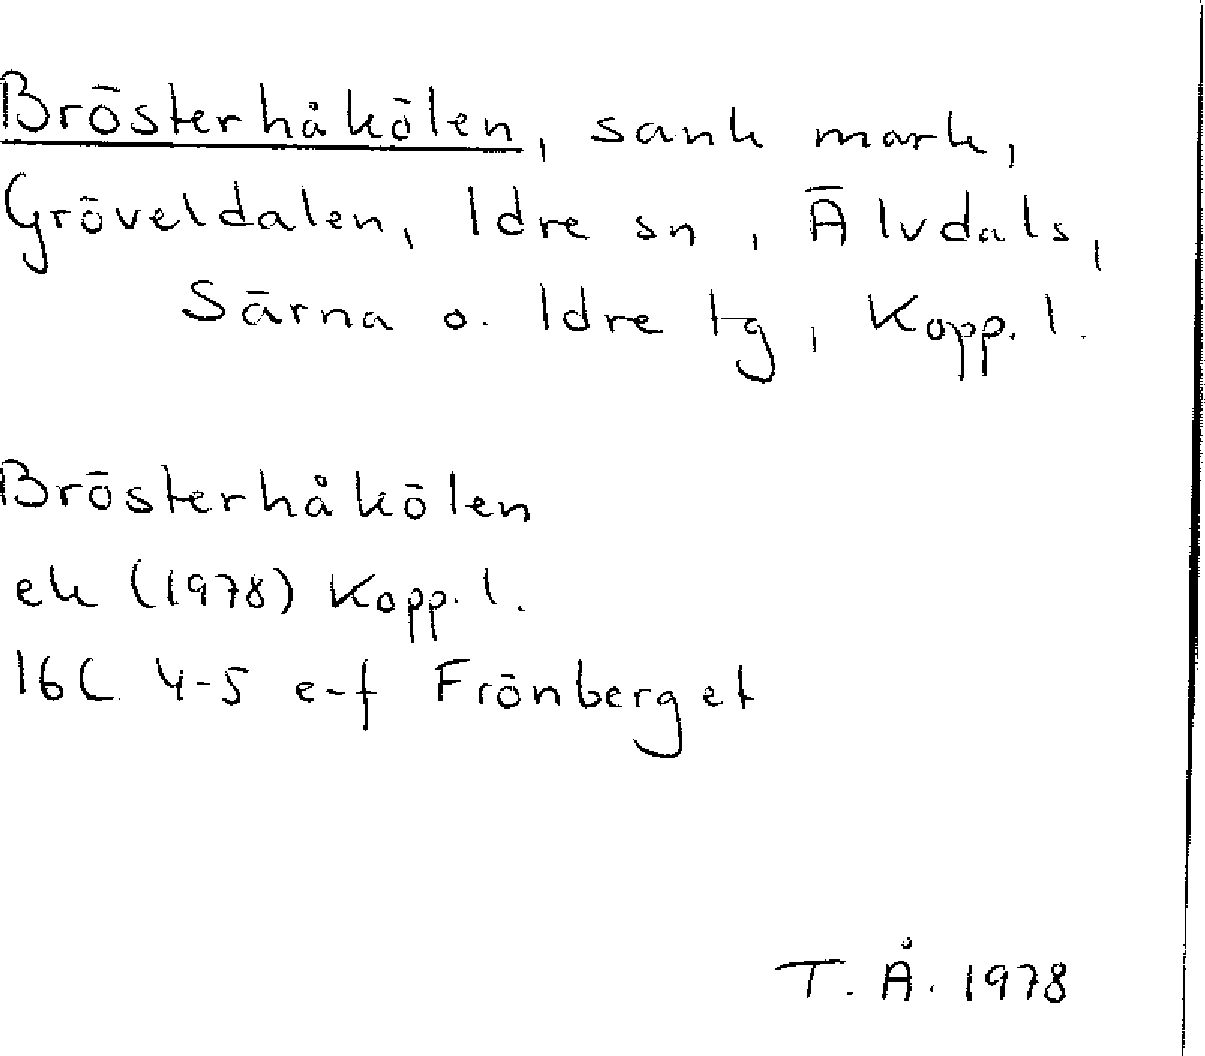 Brösterhåkölen, sank mark,
Gröveldalen, Idre sn, Älvdals,
Särna o. Idre tg, Kopp. l.
Brösterhåkölen
ek (1978) Kopp. l.
16C 4-5 e-f Frönberget
T. Å. 1978